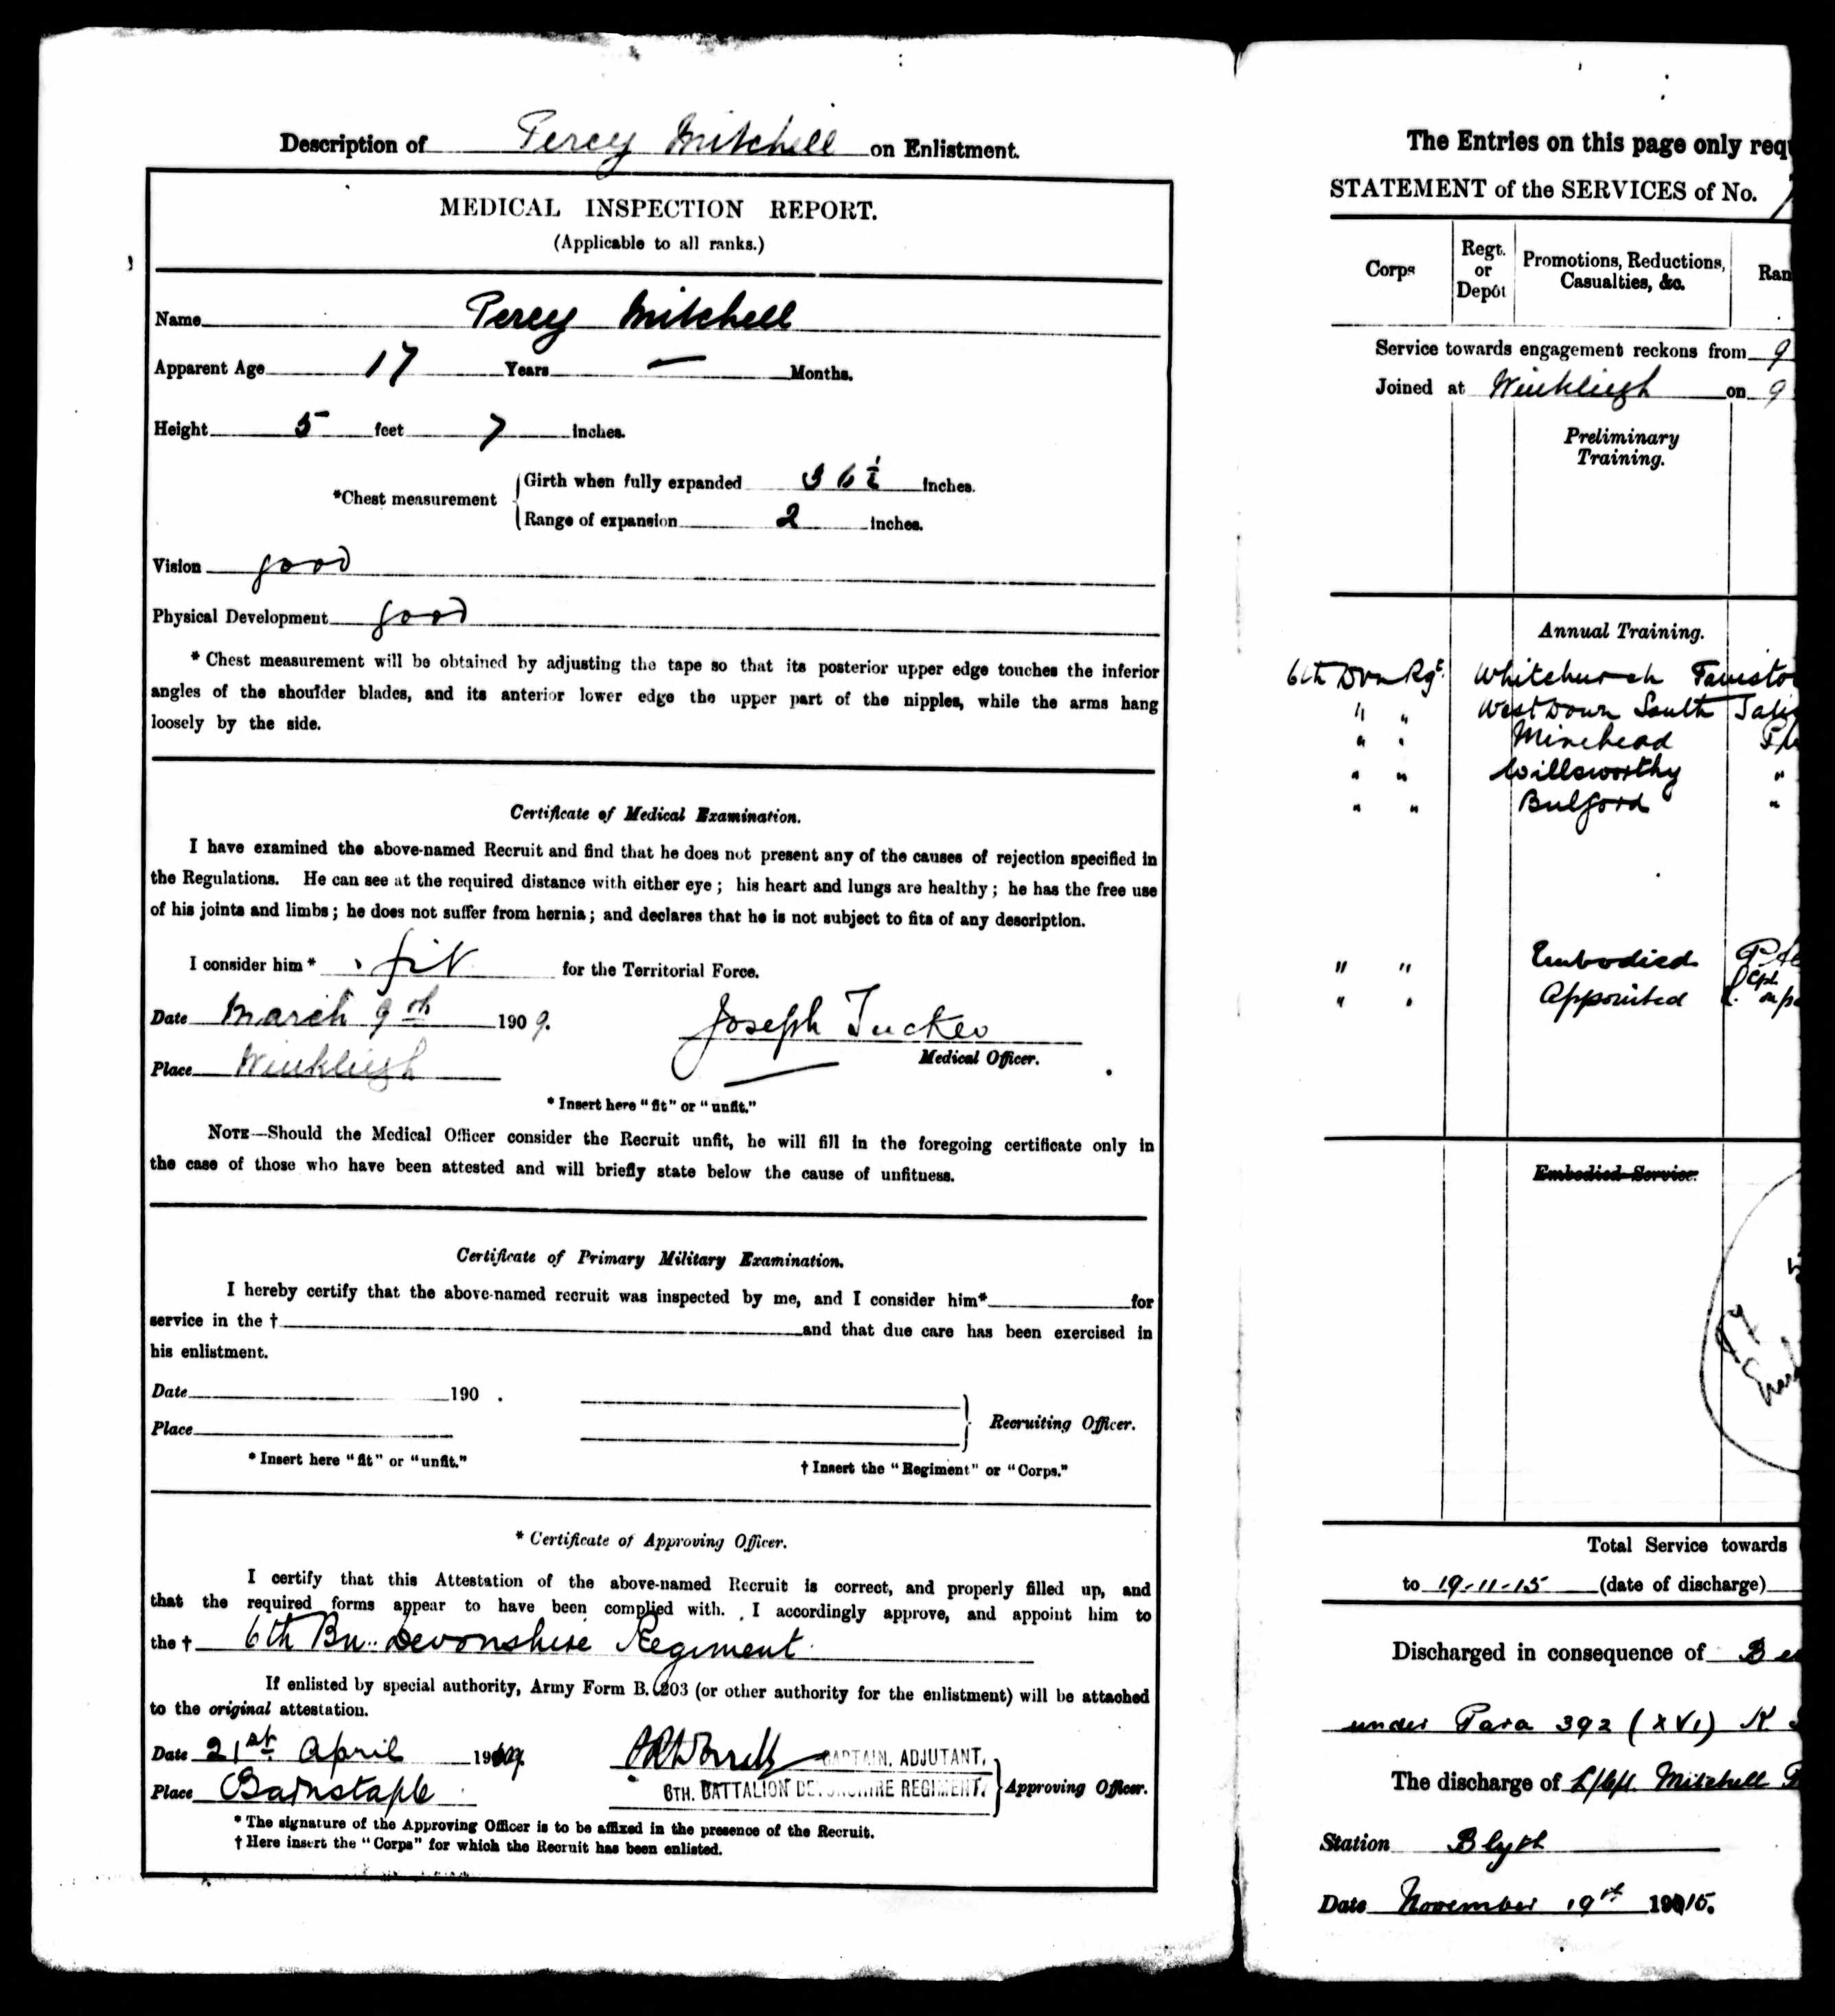 Description of Percy Mitchell on Enlistment.
MEDICAL INSPECTION REPORT.
(Applicable to all ranks.)
Name Percy Mitchell
Apparent Age 17 Years — Months.
Height 5 feet 7 inches.
*Chest measurement
Girth when fully expanded 36½ inches.
Range of expansion 2 inches.
Vision good
Physical Development good
* Chest measurement will be obtained by adjusting the tape so that its posterior upper edge touches the inferior
angles of the shoulder blades, and its anterior lower edge the upper part of the nipples, while the arms hang
loosely by the side.
Certificate of Medical Examination.
I have examined the above-named Recruit and find that he does not present any of the causes of rejection specified in
the Regulations. He can see at the required distance with either eye; his heart and lungs are healthy; he has the free use
of his joints and limbs; he does not suffer from hernia; and declares that he is not subject to fits of any description.
I consider him* fit for the Territorial Force.
Date March 9th 1909.
Joseph Tucker
Medical Officer.
Place Winkleigh
* Insert here "fit" or "unfit."
NOTE—Should the Medical Officer consider the Recruit unfit, he will fill in the foregoing certificate only in
the case of those who have been attested and will briefly state below the cause of unfitness.
Certificate of Primary Military Examination.
I hereby certify that the above-named recruit was inspected by me, and I consider him* for
service in the † and that due care has been exercised in
his enlistment.
Date 190 .
Place
Recruiting Officer.
* Insert here "fit" or "unfit."
† Insert the "Regiment" or "Corps."
* Certificate of Approving Officer.
I certify that this Attestation of the above-named Recruit is correct, and properly filled up, and
that the required forms appear to have been complied with. I accordingly approve, and appoint him to
the † 6th Bn. Devonshire Regiment.
If enlisted by special authority, Army Form B. 203 (or other authority for the enlistment) will be attached
to the original attestation.
Date 21st April 1909
CAPTAIN, ADJUTANT,
Place Barnstaple
6TH. BATTALION DEVONSHIRE REGIMENT.
Approving Officer.
* The signature of the Approving Officer is to be affixed in the presence of the Recruit.
† Here insert the "Corps" for which the Recruit has been enlisted.
The Entries on this page only req
STATEMENT of the SERVICES of No.
Corps
Regt. or Depôt
Promotions, Reductions, Casualties, &c.
Ran
Service towards engagement reckons from 9
Joined at Winkleigh on 9
Preliminary
Training.
Annual Training.
6th Dvn Rgt. Whitchurch Tavisto
" " West Down South Salis
" " Minehead
" " Willsworthy "
" " Bulford "
" " Embodied Pte
" " Appointed
Embodied Service.
Total Service towards
to 19-11-15 (date of discharge)
Discharged in consequence of
under Para 392 (XVI) K
The discharge of L/Cpl Mitchell P
Station Blyth
Date November 19th 1915.